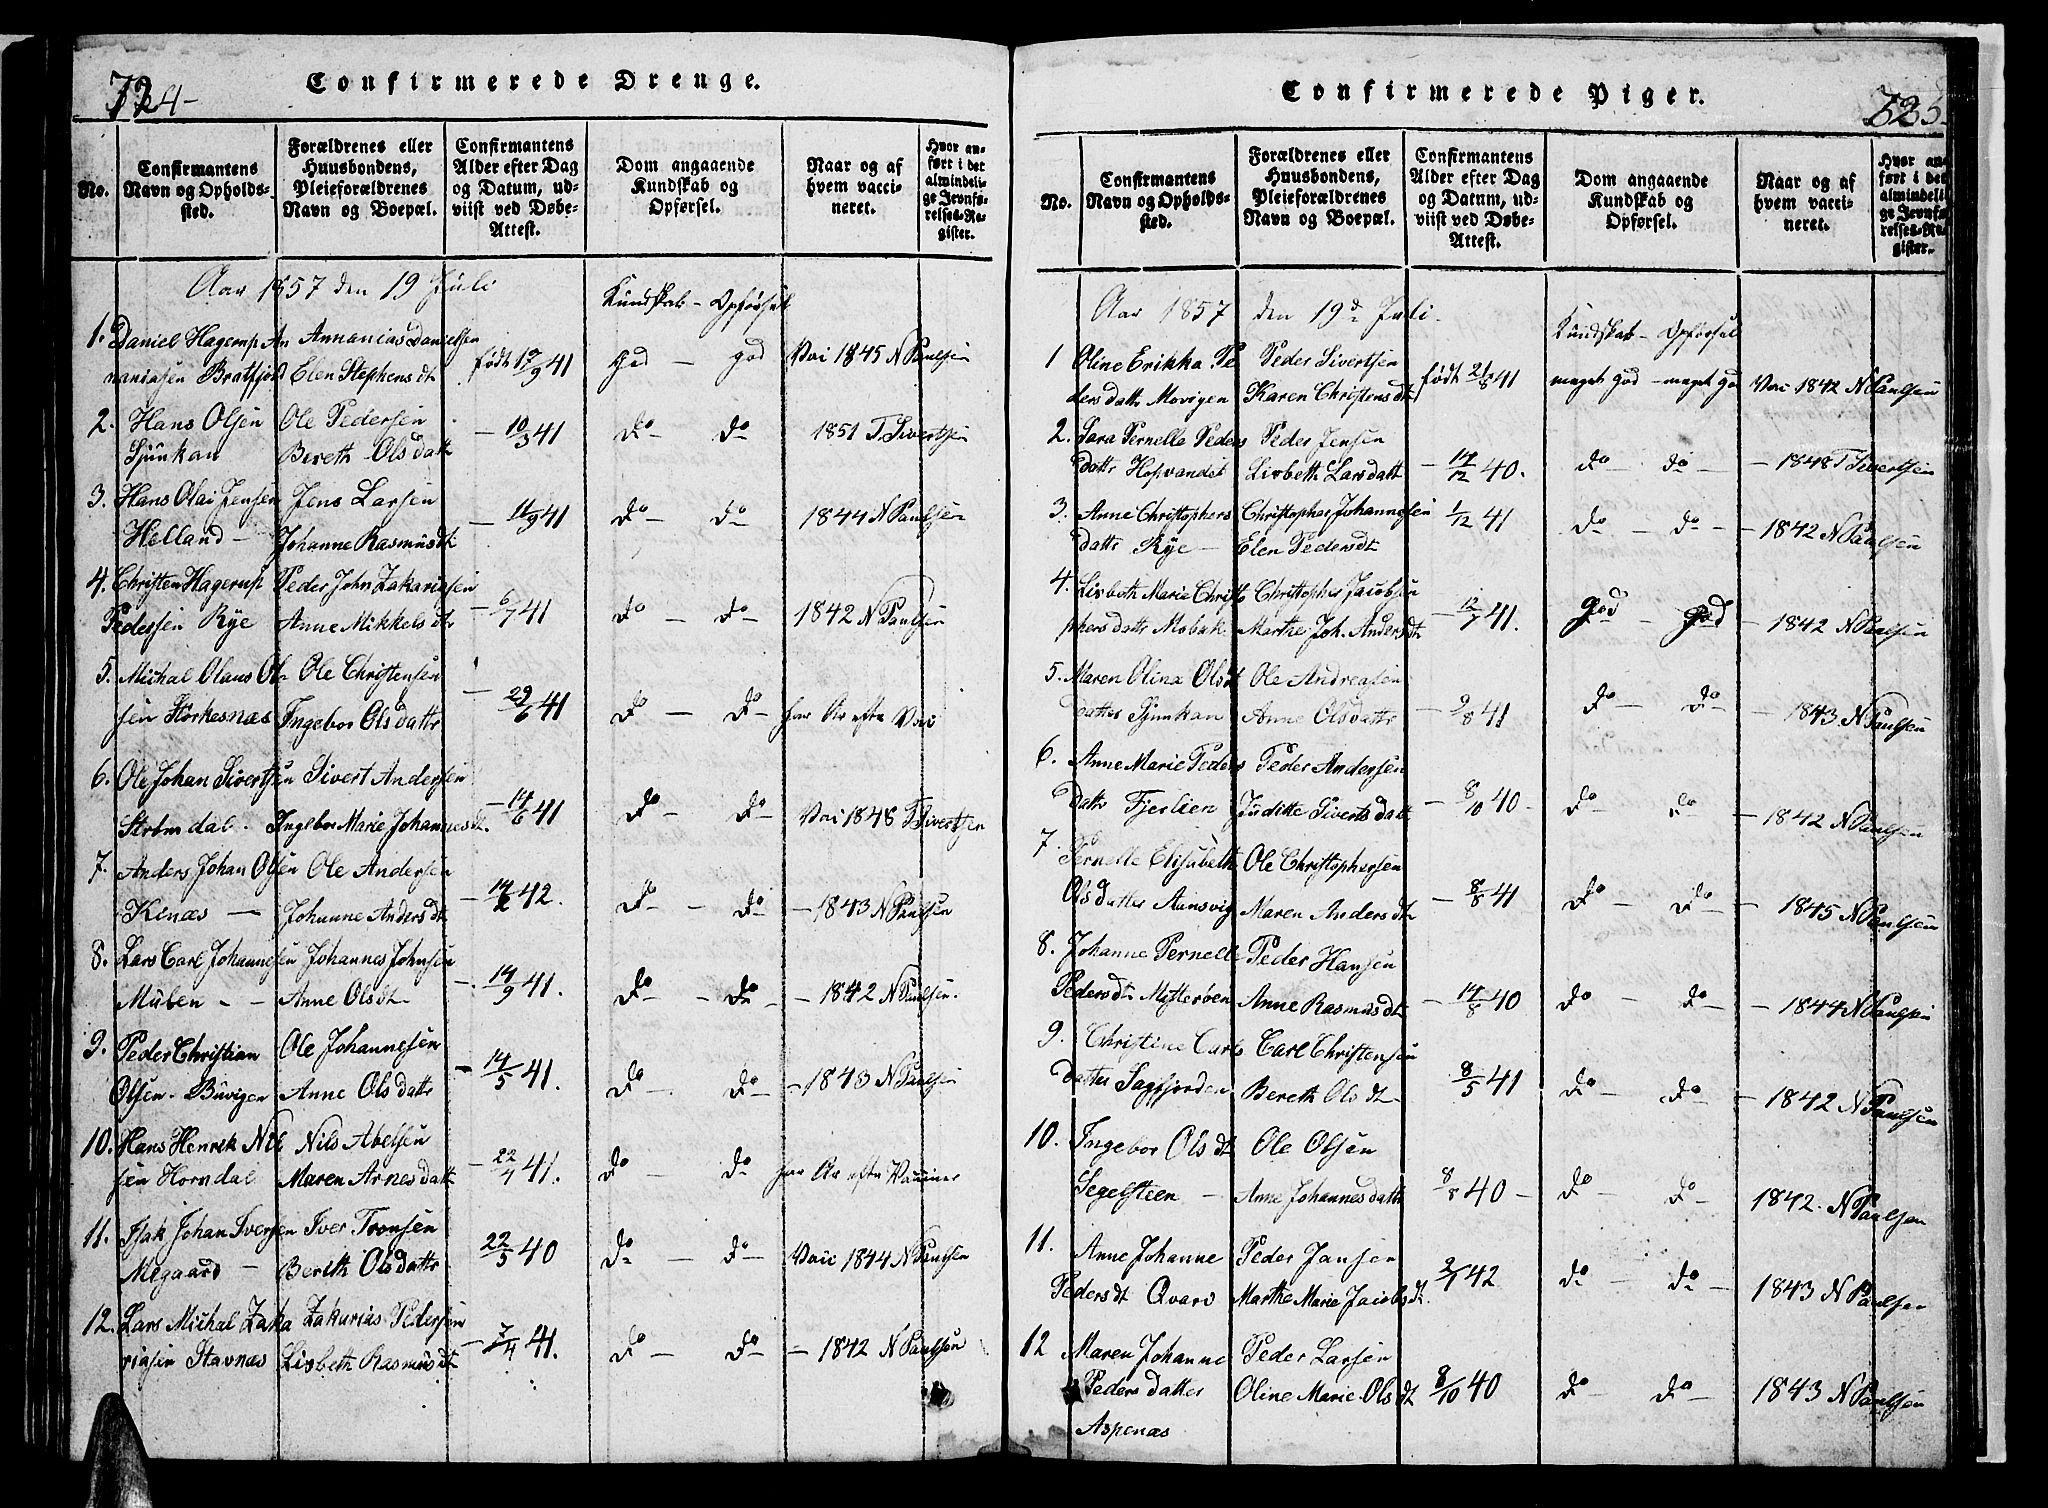 724-
Confirmerede Drenge.
No.
Confirmantens Navn og Opholdssted.
Forældrenes eller Huusbondens, Pleieforældrenes Navn og Boepæl.
Confirmantens Alder efter Dag og Datum, udviist ved Døbe-Attest.
Dom angaaende Kundskab og Opførsel.
Naar og af hvem vaccineret.
Hvor anført i det almindelige Jevnførelses-Register.
Aar 1857 den 19 Juli
Kundskab - Opførsel
1. Daniel Hagerup An Annanias Danielsen
naniasen Bratfjord Elen Stephensdt født 19/9 41 god - god Vac 1845 N Paulsen
2. Hans Olsen Ole Pedersen
Sjunkan Bereth Olsdatt - 10/3 41 do - do 1851 T Sivertsen
3. Hans Olai Jensen Jens Larsen
Helland - Johanne Rasmusdt - 11/9 41 do - do 1844 N Paulsen
4. Christen Hagerup Peder John Zakariasen
Pedersen Rye Anne Mikkelsdtr - 6/7 41 do - do 1842 N Paulsen
5. Michal Olaus Ol Ole Christensen
sen Korkesnæs Ingebor Olsdattr - 29/6 41 do - do har Ar efter Vac
6. Ole Johan Sivertsen Sivert Andersen
Strømdal. Ingebor Marie Johannesdt. - 14/6 41 do do Vac 1848 T Sivertsen
7. Anders Johan Olsen Ole Andersen
Kinæs - Johanne Andersdt - 14/2 42. do - do - 1843 N Paulsen
8. Lars Carl Johannesen Johannes Johnsen
Mulen - - Anne Olsdt - 14/9 41. do - do - 1842 N Paulsen.
9. Peder Christian Ole Johannesen
Olsen. Buvigen Anne Olsdattr - 14/5 41. do - do - 1843 N Paulsen
10. Hans Henrik Nil Nils Abelsen
sen Horndal Maren Arnesdatt - 22/4 41. do - do har Ar efter Vacciner
11. Isak Johan Iversen Iver Tronsen
Megaard - Bereth Olsdattr 22/5 40 do - do - Vacc 1844 N Paulsen
12. Lars Michal Zaka Zakarias Pedersen
riasen Stavnæs Lisbeth Rasmusdt - 7/4 41. do - do - 1842 N Paulsen
725
Confirmerede Piger.
No.
Confirmantens Navn og Opholdssted.
Forældrenes eller Huusbondens, Pleieforældrenes Navn og Boepæl.
Confirmantens Alder efter Dag og Datum, udviist ved Døbe-Attest.
Dom angaaende Kundskab og Opførsel.
Naar og af hvem vaccineret.
Hvor anført i det almindelige Jevnførelses-Register.
Aar 1857 den 19de Juli.
Kundskab - Opførsel
1 Oline Erikka Pe Peder Sivertsen
dersdattr Movigen Karen Christensdt født 21/8 41 meget god - meget go Vac 1842 N Paulsen
2. Sara Pernella Peders Peder Jensen
dattr Hopvandet Lisbeth Larsdatt - 14/12 40. do - do - 1848 T Sivertsen
3. Anne Christophers Christopher Johannesen
dattr Rye - Elen Pedersdt 1/12 41 do - do - - 1842 N Paulsen
4. Lisbeth Marie Christo Christopher Jacobsen
phersdattr Mobak. Marthe Joh. Andersdt - 12/7 41. god - god - 1842 N Paulsen
5. Maren Olina Olsdt Ole Andreasen
datter Sjunkan Anne Olsdattr - 9/8 41 do - do - - 1843 N Paulsen
6. Anne Marie Peders Peder Andersen
dattr Fjerlien Juditte Sivertsdatt - 8/10 40 - do - do - 1842 N Paulsen
7. Pernelle Elisabeth Ole Christophersen
Olsdatter Aunsvig Maren Andersdt - 8/8 41 do - do - - 1845 N Paulsen
8. Johanne Pernelle Peder Hansen
Pedersdt Mytterøen Anne Rasmusdt - 14/8 40 do - do - - 1844 N Paulsen
9 Christine Carls Carl Christensen
datter Sagfjorden Bereth Olsdt - 8/5 41 do - do - 1842 N Paulsen
10. Ingebor Olsdt Ole Olsen
Segelsteen - Anne Johannesdattr 8/8 40 - do - do - 1842. N Paulsen
11. Anne Johanne Peder Jansen
Pedersdt Qvarv Marthe Marie Jacobsdt. 2/1 42 do - do - 1843 N Paulsen
12 Maren Johanne Peder Larsen
Pedersdatter Oline Marie Olsdt 8/10 40 do - do - 1843 N Paulsen
Aspenæs